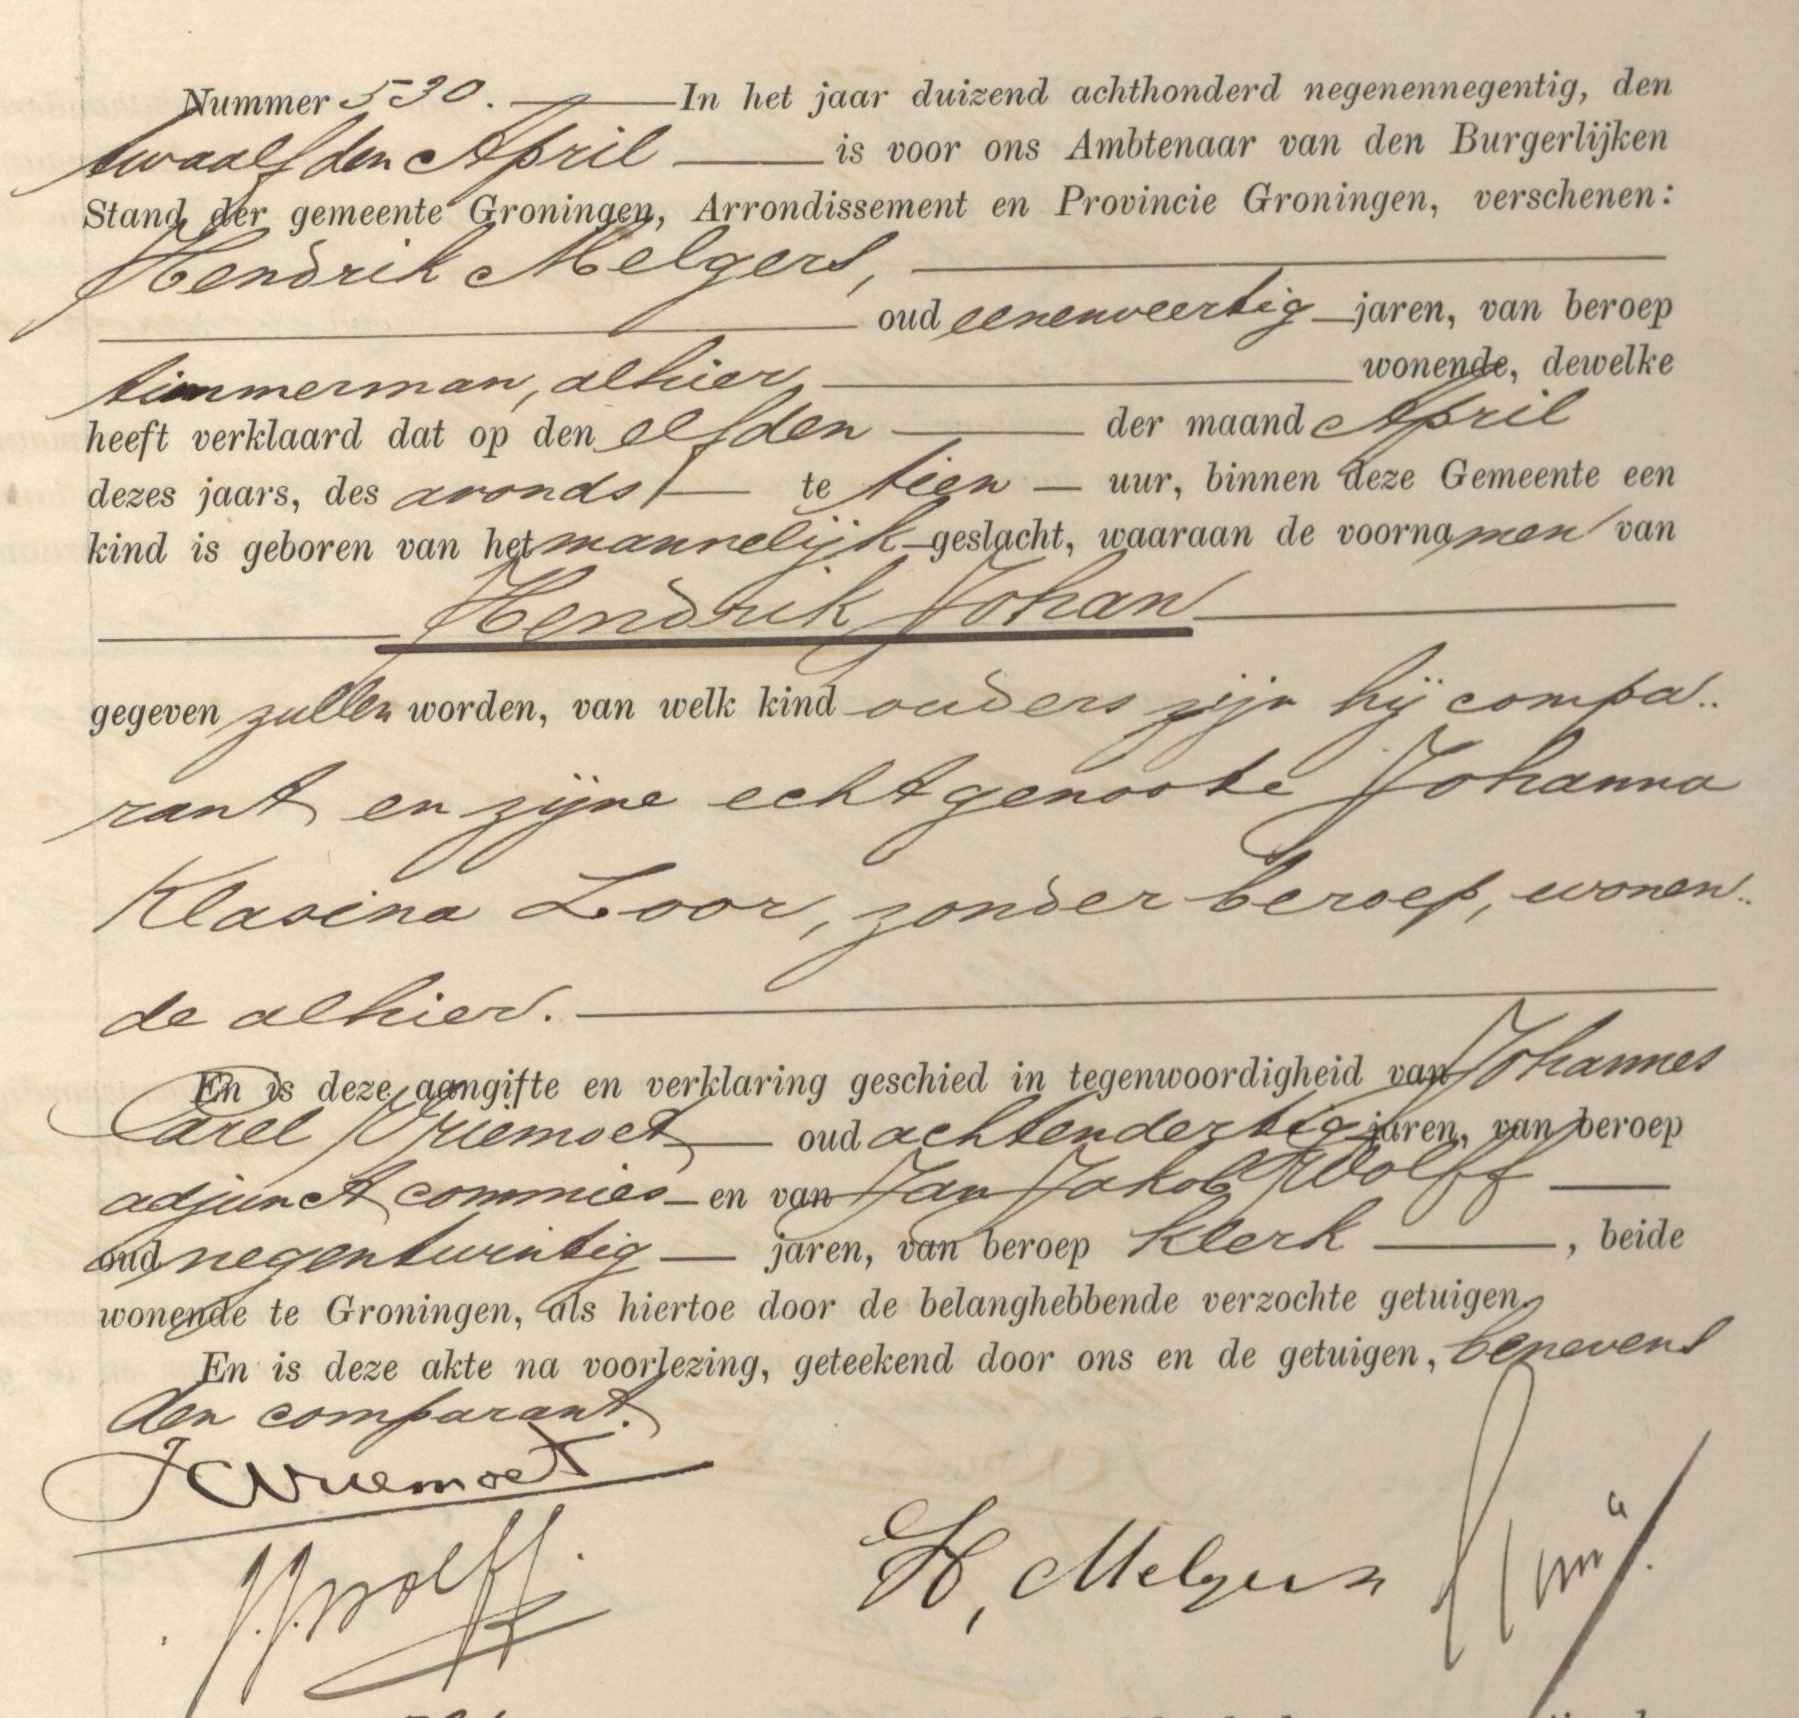 Nummer 530. In het jaar duizend achthonderd negenennegentig, den
twaalfden April is voor ons Ambtenaar van den Burgerlijken
Stand der gemeente Groningen, Arrondissement en Provincie Groningen, verschenen:
Hendrik Melgers,
oud eenenveertig jaren, van beroep
timmerman, alhier wonende, dewelke
heeft verklaard dat op den elfden der maand April
dezes jaars, des avonds te tien uur, binnen deze Gemeente een
kind is geboren van het mannelijk geslacht, waaraan de voornamen van
Hendrik Johan
gegeven zullen worden, van welk kind ouders zijn hij compa..
rant en zijne echtgenoote Johanna
Klasina Loor, zonder beroep, wonen..
de alhier.
En is deze aangifte en verklaring geschied in tegenwoordigheid van Johannes
Carel Vriemoet oud achtendertig jaren, van beroep
adjunct commies en van Jan Jakob Wolff
oud negentwintig jaren, van beroep klerk, beide
wonende te Groningen, als hiertoe door de belanghebbende verzochte getuigen.
En is deze akte na voorlezing, geteekend door ons en de getuigen, benevens
den comparant.
JCVriemoet
J.J. Wolff. H, Melgers